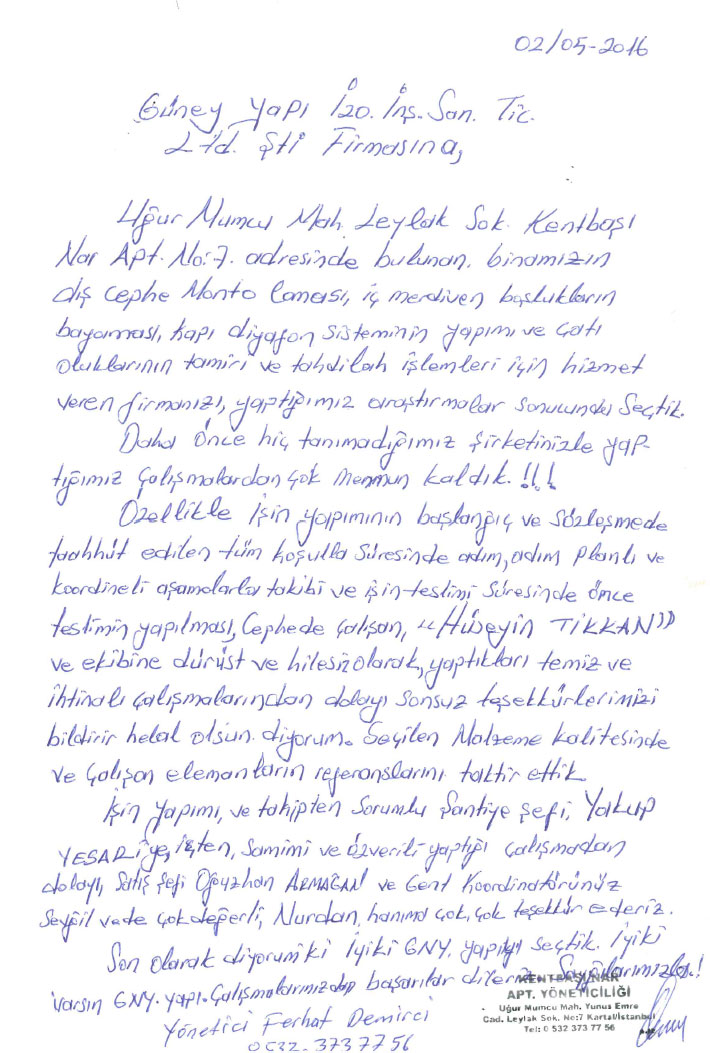 02/05-2016
Güney Yapı İzo. İnş. San. Tic.
Ltd. Şti Firmasına,
Uğur Mumcu Mah. Leylak Sok. Kentbaşı
Nar Apt. No:7. adresinde bulunan. binamızın
dış cephe Monto laması, iç merdiven boşlukların
boyaması, kapı diyafon sisteminin yapımı ve çatı
oluklarının tamiri ve tahdilah işlemleri için hizmet
veren firmanızı, yaptığımız araştırmalar sonucunda Seçtik.
Daha önce hiç tanımadığımız şirketinizle yap-
tığımız çalışmalardan çok memnun kaldık.!!!
Özellikle işin yapımının başlangıç ve sözleşmede
taahhüt edilen tüm koşulla süresinde adım, adım planlı ve
koordineli aşamalarla takibi ve işin teslimi süresinde önce
teslimin yapılması, Cephede çalışan, "Hüseyin TİKKAN"
ve ekibine dürüst ve hilesiz olarak, yaptıkları temiz ve
ihtinalı çalışmalarından dolayı sonsuz teşekkürlerimizi
bildirir helal olsun. diyorum. Seçilen Malzeme kalitesinde
ve çalışan elemanların referanslarını taktir ettik.
İşin yapımı, ve tahipten Sorumlu Şantiye şefi, Yakup
YESARİ'ye, içten, samimi ve özverili yaptığı çalışmadan
dolayı, Satış şefi Oğuzhan ARMAĞAN ve Genl Koordinatörünüz
vede çok değerli, Nurdan, hanıma çok, çok teşekkür ederiz.
Son olarak diyorum ki İyiki GNY. yapıyı seçtik. İyiki
varsın GNY. yapı. başarılar Saygılarımızla.!
Yönetici Ferhat Demirci
0532. 373 77 56
KENTBAŞI NAR
APT. YÖNETİCİLİĞİ
Uğur Mumcu Mah. Yunus Emre
Cad. Leylak Sok. No:7 Kartal/İstanbul
Tel: 0 532 373 77 56